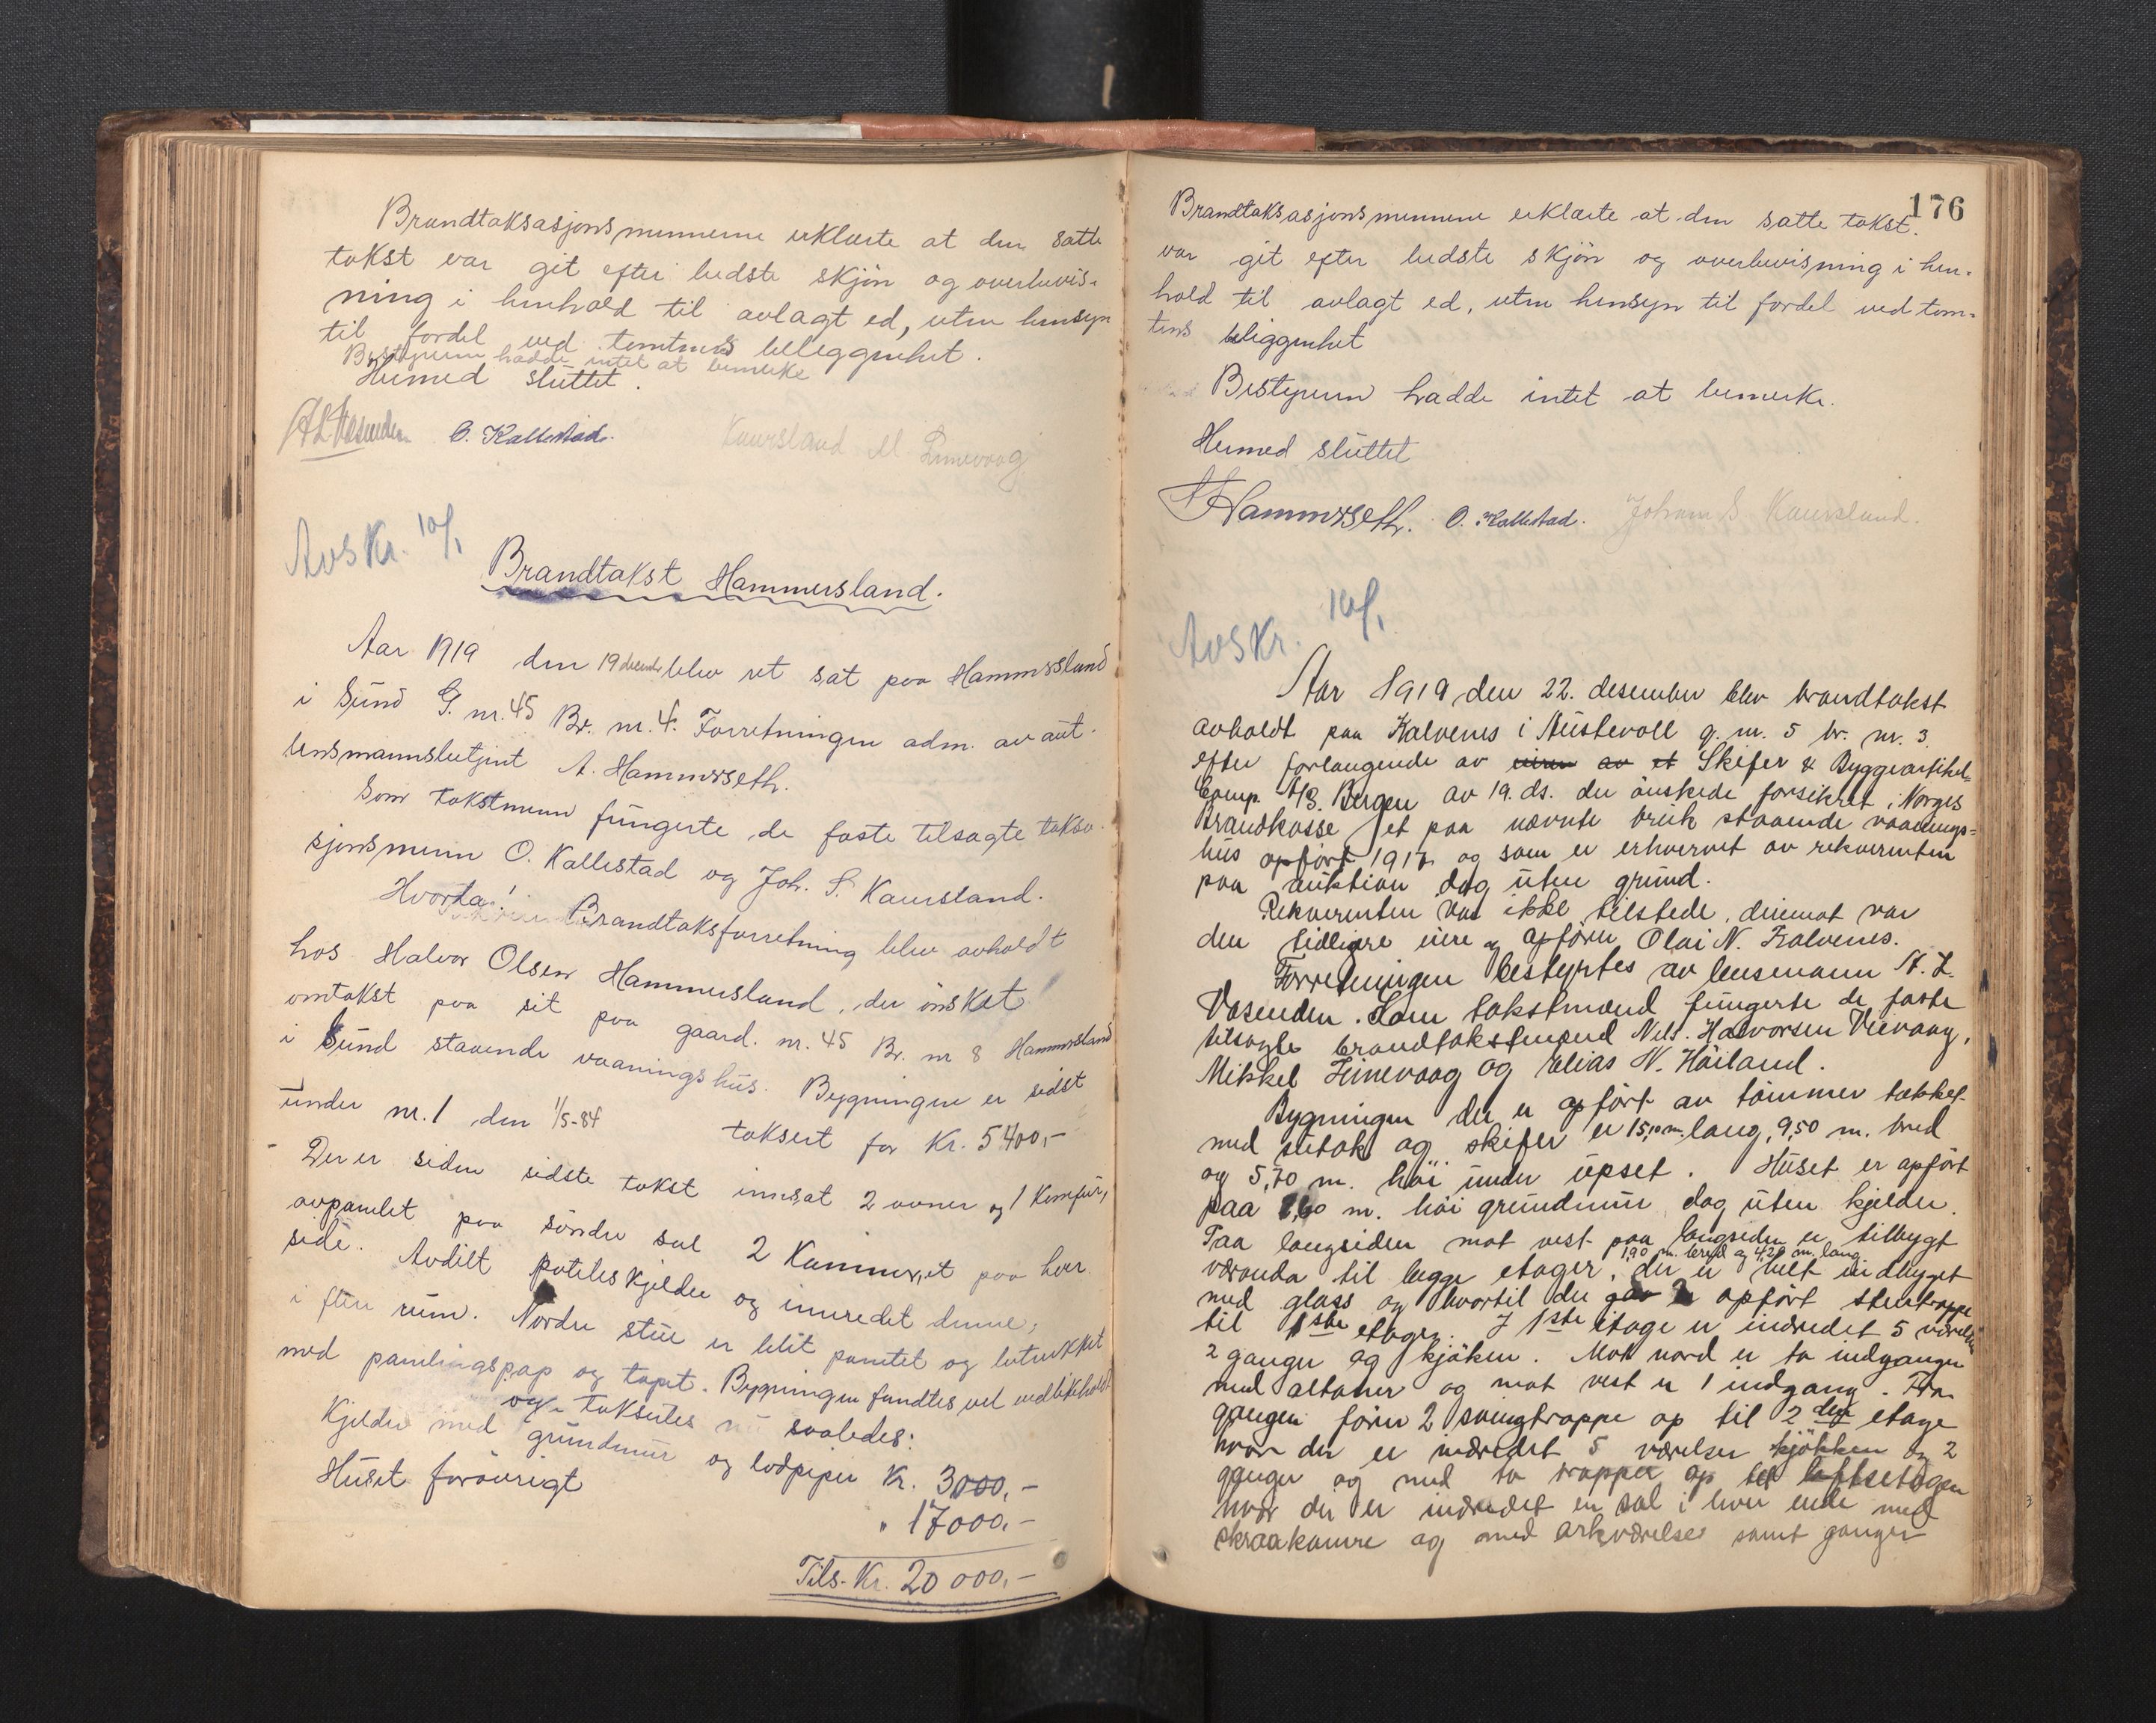 Brandtaksasjonsmennene erklærte at den satte
takst var git efter bedste skjön og overbevis-
ning i henhold til avlagt ed, uten hensyn
til fordel ved tomtens beliggenhet.
Bestyreren hadde intet at bemerke
Hermed sluttet.
O. Kallestad.
Kaursland M
Avskr. 10/1
Brandtakst Hammersland.
Aar 1919 den 19 decembr blev ret sat paa Hammersland
i Sund G. nr. 45 Br. nr. 4. Forretningen adm. av aut.
lensmannsbetjent A. Hammerseth.
Som takstmenn fungerte de faste tilsagte taksa-
sjonsmenn O. Kallestad og Joh. S. Kaursland.
Hvorda!
Brandtaksforretning blev avholdt
hos Halvor Olsen Hammersland, der önsket
omtakst paa sit paa gaard. nr. 45 Br. nr 8 Hammersland
i Sund staaende vaaningshus. Bygningen er sidst
under nr. 1 den 1/5-84 taksert for Kr. 5400,-
Der er siden sidste takst innsat 2 ovner og 1 Komfur,
avpanelet paa söndre sal 2 Kammer, et paa hver
side. Avdelt poteteskjelder og innredet denne,
i flere rum. Nordre stue er blit panelet og betrukket
med panelingspap og tapet. Bygningen fandtes vel vedlikeholdt
og taksertes nu saaledes:
Kjelder med grundmur og lodpiper Kr. 3000,-
Huset forövrigt " 17000,-
Tils. Kr. 20 000,-
176
Brandtaksasjonsmennene erklærte at den satte takst.
var git efter bedste skjön og overbevisning i hen-
hold til avlagt ed, uten hensyn til fordel ved tom-
tens beliggenhet
Bestyreren hadde intet at bemerke.
Hermed sluttet
A Hammerseth. O. Kallestad. Johann S. Kaursland.
Avskr. 10/1
Aar 1919 den 22. desember blev brandtakst
avholdt paa Kalvenes i Austevoll g. nr. 5 br. nr. 3
efter forlangende av eieren av et Skifer & Byggeartikel-
Comp. A/S. Bergen av 19. ds. der önskede forsikret i Norges
Brandkasse et paa nævnte bruk staaende vaanings-
hus opfört 1917 og som er erhvervet av rekvirenten
paa auktion dog uten grund.
Rekvirenten var ikke tilstede, derimot var
den tidligere eiere og opförer Olai N. Kalvenes.
Forretningen bestyrtes av lensmann A. L.
Vasenden. Som takstmænd fungerte de faste
tilsagte brandtakstmænd Nils. Halvorsen Vievaag,
Mikkel og Elias N. Höiland.
Bygningen der er opfört av tömmer tækket
med sutak og skifer er 15,10 m. lang, 9,50 m. bred
og 5,70 m. höi under upset. Huset er opfört
paa m. höi grundmur dog uten kjelder.
Paa langsiden mot vest paa langsiden er tilbygt
1,90 m. bred og 4,20 m. lang
væranda til begge etager, der er helt indbyget
med glass og hvortil der opfört stentrappe
til 1ste etager. I 1ste etage er indredet 5 værelser
2 ganger og kjöken. Mot nord er to indganger
med altaner og mot vest er 1 indgang. Fra
gangen förer 2 svingtrappe op til 2den etage
hvor der er indredet 5 værelser kjökken og 2
ganger og med to trapper op til loftsetagen
hvor der er indredet en sal i hver ende med
skraakamre og med arkværelser samt ganger